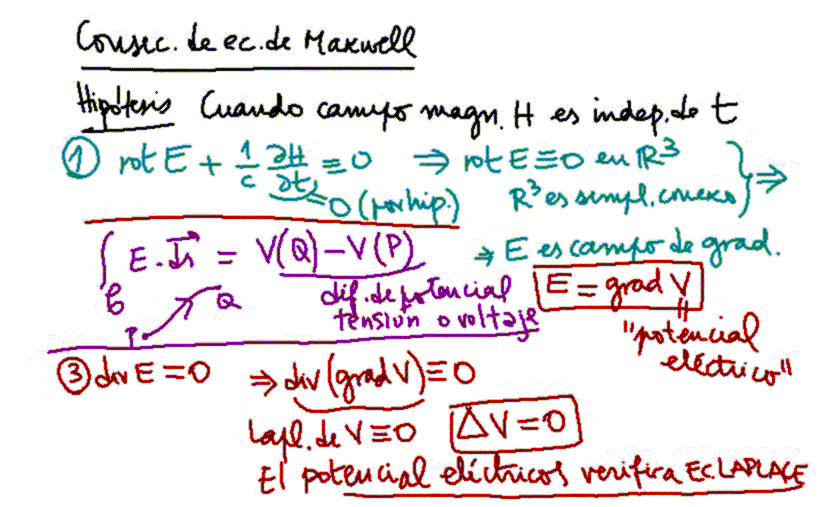 Consec. de ec. de Maxwell
Hipótesis Cuando campo magn. H es indep. de t
① rot E + 1/c ∂H/∂t ≡ 0 ⇒ rot E ≡ 0 en ℝ³ } ⇒
=0 (por hip.) ℝ³ es simpl. conexo
⇒ E es campo de grad.
∫ E · ds = V(Q) − V(P)
C
P Q
dif. de potencial
tensión o voltaje
E = grad V
"potencial
eléctrico"
③ div E = 0 ⇒ div (grad V) ≡ 0
Lapl. de V ≡ 0 ΔV = 0
El potencial eléctricos verifica EC. LAPLACE